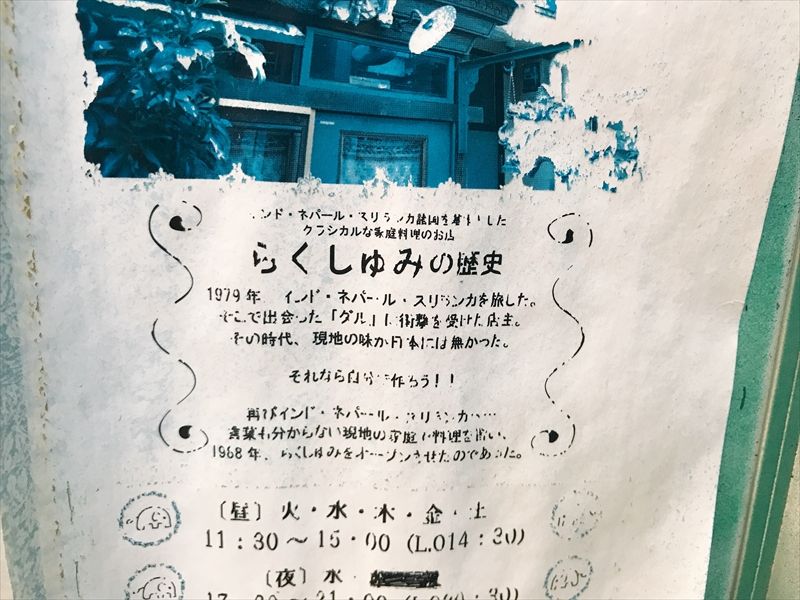 インド・ネパール・スリランカ諸国を
クラシカルな家庭料理のお店
らくしゅみの歴史
1979年、インド・ネパール・スリランカを旅した。
そこで出会った「ダル」に衝撃を受けた店主。
その時代、現地の味が日本には無かった。
それなら自分で作ろう！！
再びインド・ネパール・スリランカへ…
言葉も分からない現地の家庭で料理を習い、
1988年、らくしゅみをオープンさせたのであった。
〔昼〕火・水・木・金・土
11：30～15：00（L.O14：30）
〔夜〕水・